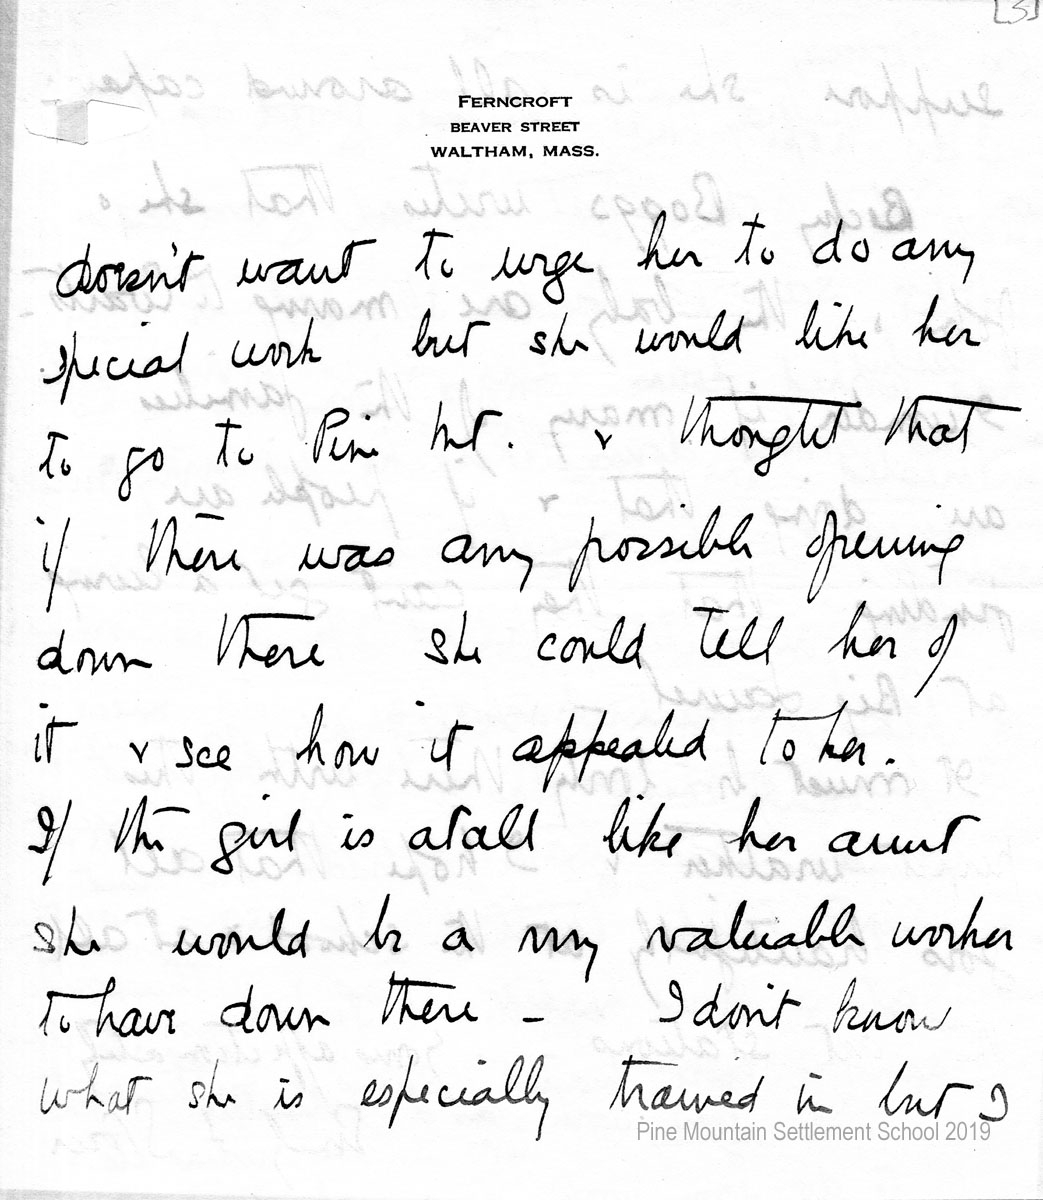 [3]
FERNCROFT
BEAVER STREET
WALTHAM, MASS.
doesn't want to urge her to do any
special work but she would like her
to go to Pine Mt. & thought that
if there was any possible opening
down there she could tell her of
it & see how it appealed to her.
If the girl is at all like her aunt
she would be a very valuable worker
to have down there – I don't know
what she is especially trained in but I
Pine Mountain Settlement School 2019